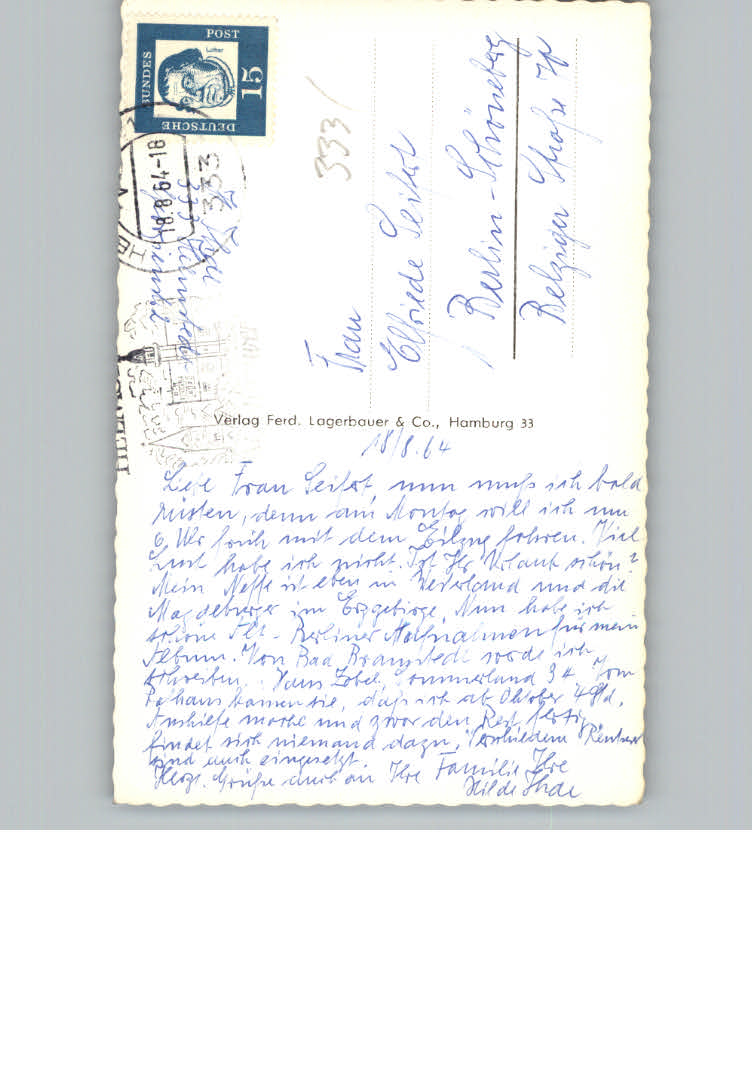 DEUTSCHE
BUNDES
POST
Luther
15
18.8.64-18
333
HELMST
H. Ihde
333 Helmstedt
333
Frau
Elfriede Seifert
Berlin-Schöneberg
Belziger Straße
Verlag Ferd. Lagerbauer & Co., Hamburg 33
18/8.64
Liebe Frau Seifert, nun muß ich bald
rüsten, denn am Montag will ich um
6 Uhr früh mit dem Eilzug fahren. Viel
Lust habe ich nicht. Ist Ihr Urlaub schön?
Mein Neffe ist eben in und die
Magdeburger im Erzgebirge. Nun habe ich
schöne Alt-Berliner Aufnahmen für mein
Album. Von Bad Bramstedt werde ich
schreiben. Haus Zobel, Sommerland 34 Vom
Rathaus kamen sie, daß ich ab Oktober 4 Std.
Aushilfe mache und zwar den Rest fertig
findet sich niemand dazu. Verschiedene Rentner
sind auch eingesetzt.
Herzl. Grüße auch an Ihre Familie Ihre
Hilde Ihde